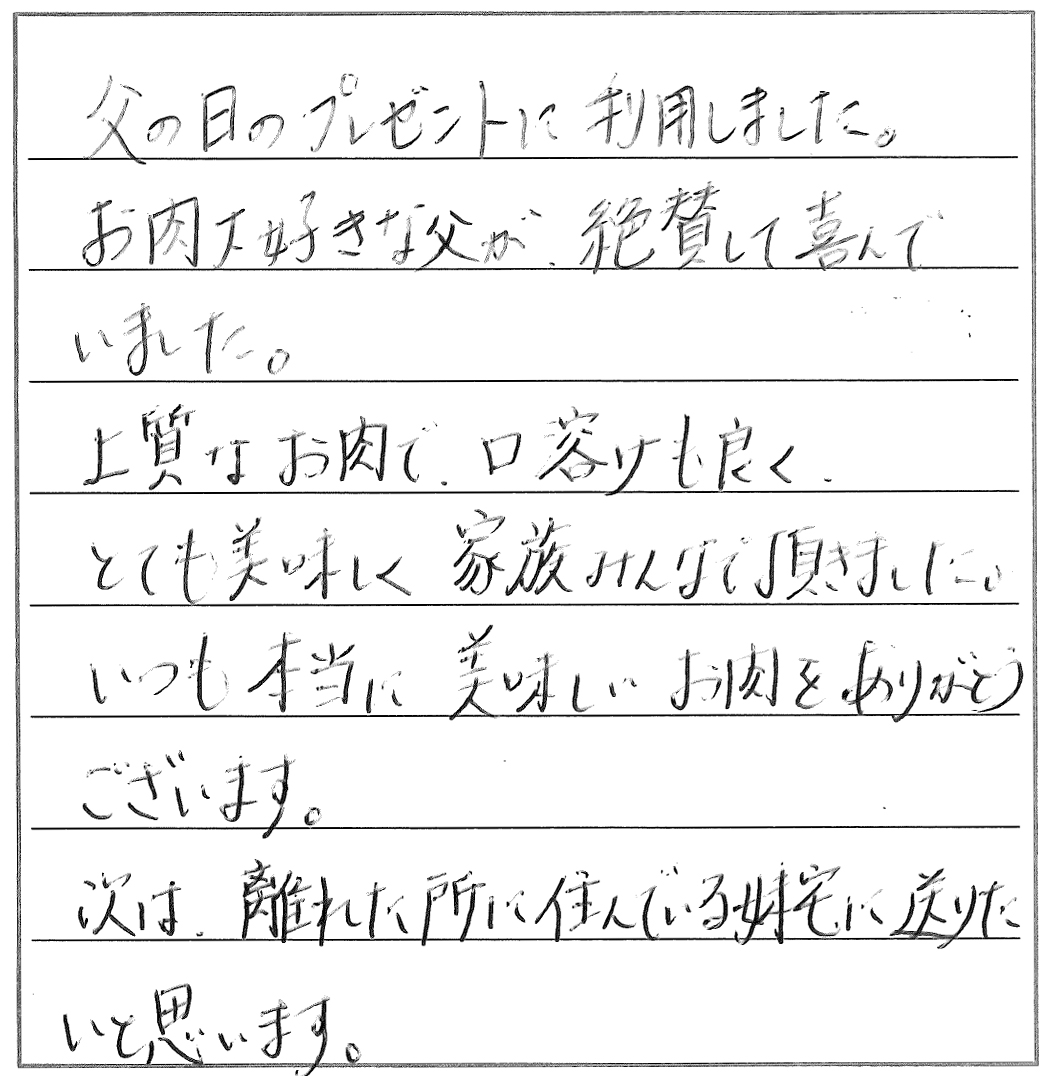 父の日のプレゼントに利用しました。
お肉大好きな父が、絶賛して喜んで
いました。
上質なお肉で、口容けも良く、
とても美味しく家族みんなで頂きました。
いつも本当に美味しいお肉をありがとう
ございます。
次は、離れた所に住んでいる妹宅に送りた
いと思います。